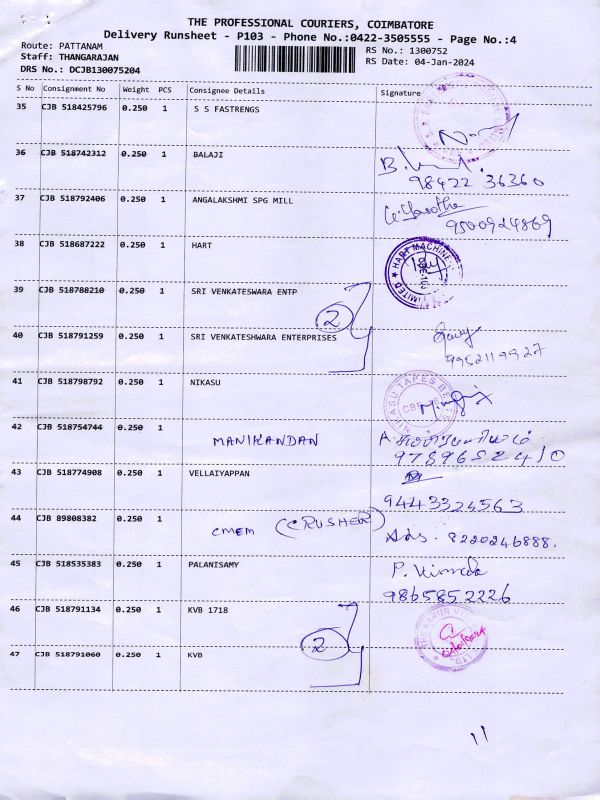 THE PROFESSIONAL COURIERS, COIMBATORE
Delivery Runsheet - P103 - Phone No.:0422-3505555 - Page No.:4
Route: PATTANAM
RS No.: 1300752
Staff: THANGARAJAN
RS Date: 04-Jan-2024
DRS No.: DCJB130075204
S No Consignment No Weight PCS Consignee Details Signature
35 CJB 518425796 0.250 1 S S FASTRENGS
36 CJB 518742312 0.250 1 BALAJI
98422 36360
37 CJB 518792406 0.250 1 ANGALAKSHMI SPG MILL
9500924869
38 CJB 518687222 0.250 1 HART
HART MACHINE LIMITED
39 CJB 518788210 0.250 1 SRI VENKATESWARA ENTP
2
40 CJB 518791259 0.250 1 SRI VENKATESHWARA ENTERPRISES
9952119927
41 CJB 518798792 0.250 1 NIKASU
NIKASU TAPES BELTS
42 CJB 518754744 0.250 1 MANIKANDAN
9789652410
43 CJB 518774908 0.250 1 VELLAIYAPPAN
9443324563
44 CJB 89808382 0.250 1 CMEM (CRUSHER)
8220246888.
45 CJB 518535383 0.250 1 PALANISAMY
9865852226
46 CJB 518791134 0.250 1 KVB 1718
2
47 CJB 518791060 0.250 1 KVB
11